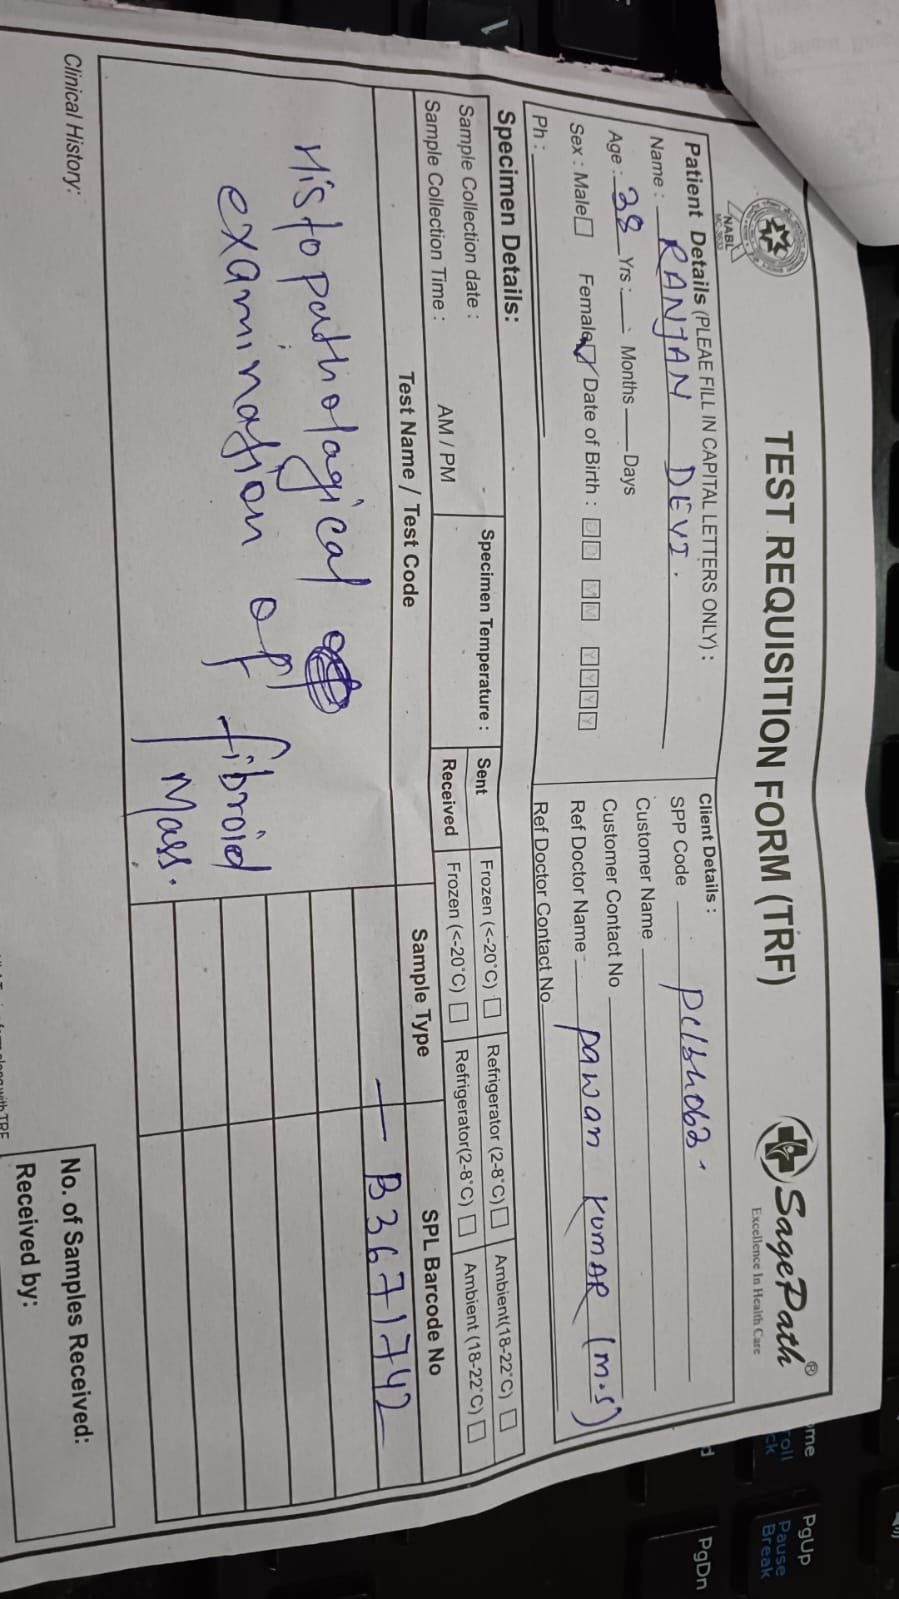 TEST REQUISITION FORM (TRF)
SagePath®
Excellence In Health Care
NABL
Patient Details (PLEAE FILL IN CAPITAL LETTERS ONLY) :
Name : RANJAN DEVI.
Age : 38 Yrs : Months Days
Sex : Male Female Date of Birth : D D M M Y Y Y Y
Ph :
Client Details :
SPP Code
Customer Name
Customer Contact No
Ref Doctor Name Pawan KUMAR (M.S)
Ref Doctor Contact No
Specimen Details:
Sample Collection date :
Sample Collection Time : AM / PM
Specimen Temperature :
Sent Frozen (<-20°C) Refrigerator (2-8°C) Ambient(18-22°C)
Received Frozen (<-20°C) Refrigerator(2-8°C) Ambient (18-22°C)
Test Name / Test Code Sample Type SPL Barcode No
Histopathological B3671742
examination of fibroid
Mass.
Clinical History:
No. of Samples Received:
Received by:
me
PgUp
Pause
Break
PgDn